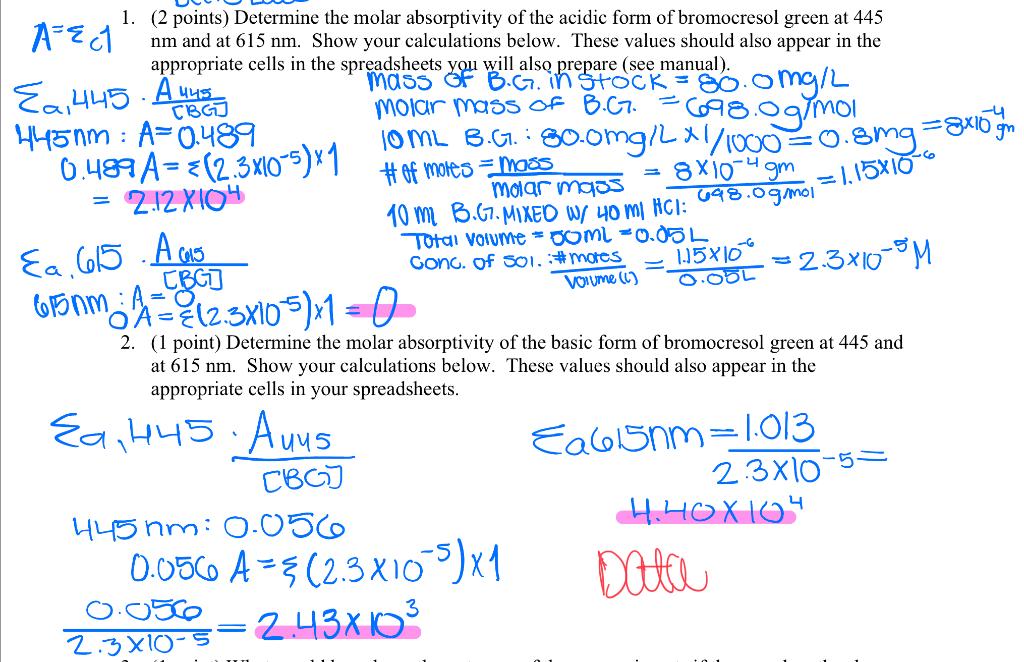 1. (2 points) Determine the molar absorptivity of the acidic form of bromocresol green at 445
nm and at 615 nm. Show your calculations below. These values should also appear in the
appropriate cells in the spreadsheets you will also prepare (see manual).
A=εcl
εa,445 · A445/[BG]
445nm : A=0.489
0.489 A=ε(2.3x10⁻⁵)x1
= 2.12 x10⁴
εa,615 · A615/[BG]
615nm : A=0
0 A=ε(2.3x10⁻⁵)x1 = 0
mass of B.G. in stock = 80.0mg/L
molar mass of B.G. = 698.0g/mol
10mL B.G.: 80.0mg/L x1/1000 = 0.8mg = 8x10⁻⁴ gm
# of moles = mass/molar mass = 8x10⁻⁴ gm/698.0g/mol = 1.15x10⁻⁶
10 ml B.G. MIXED W/ 40 ml HCl:
Total volume = 50mL = 0.05L
Conc. of sol.: # moles/volume(L) = 1.15x10⁻⁶/0.05L = 2.3x10⁻⁵ M
2. (1 point) Determine the molar absorptivity of the basic form of bromocresol green at 445 and
at 615 nm. Show your calculations below. These values should also appear in the
appropriate cells in your spreadsheets.
εa,445 · A445/[BG]
445nm: 0.056
0.056 A=ε(2.3x10⁻⁵)x1
0.056/2.3x10⁻⁵ = 2.43x10³
εa615nm = 1.013/2.3x10⁻⁵ =
4.40x10⁴
Data